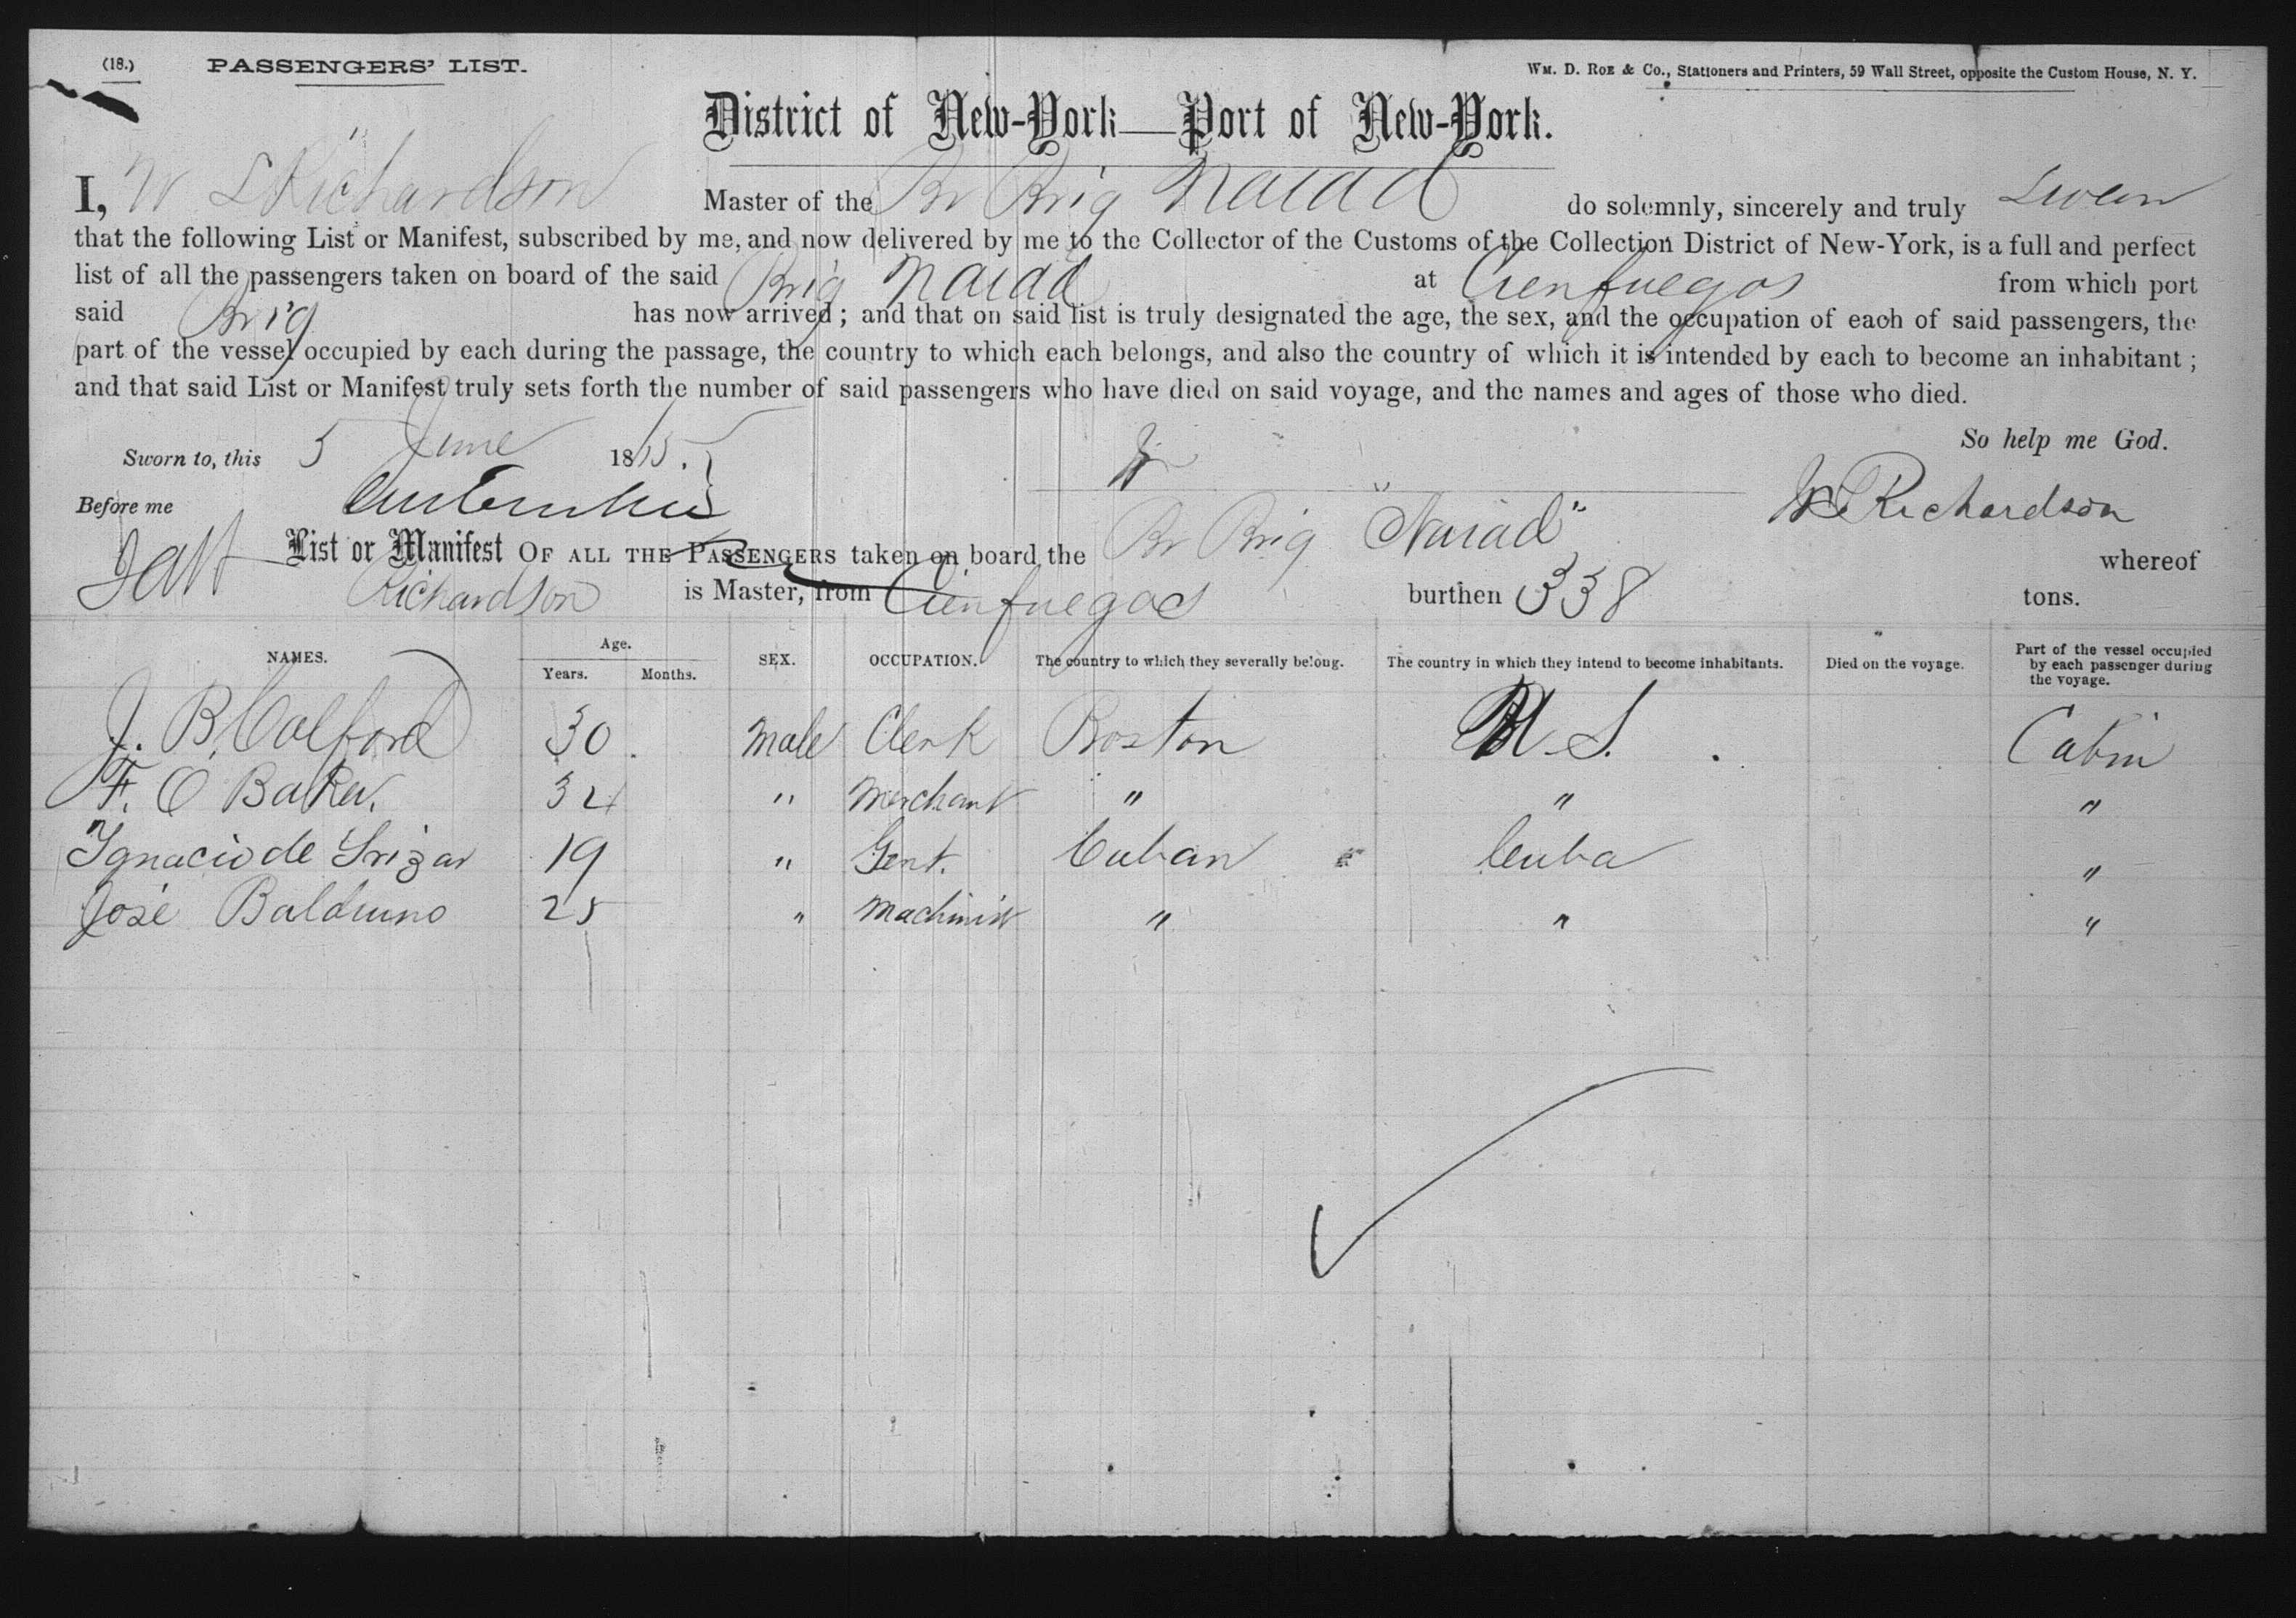 (18.) PASSENGERS' LIST. WM. D. ROE & Co., Stationers and Printers, 59 Wall Street, opposite the Custom House, N. Y.
District of New-York—Port of New-York.
I, W L Richardson Master of the Br Brig Naiad do solemnly, sincerely and truly swear
that the following List or Manifest, subscribed by me, and now delivered by me to the Collector of the Customs of the Collection District of New-York, is a full and perfect
list of all the passengers taken on board of the said Brig Naiad at Cienfuegos from which port
said Brig has now arrived; and that on said list is truly designated the age, the sex, and the occupation of each of said passengers, the
part of the vessel occupied by each during the passage, the country to which each belongs, and also the country of which it is intended by each to become an inhabitant;
and that said List or Manifest truly sets forth the number of said passengers who have died on said voyage, and the names and ages of those who died.
So help me God.
Sworn to, this 5 June 18
Before me W L Richardson
List or Manifest OF ALL THE PASSENGERS taken on board the Br Brig "Naiad" whereof
Richardson is Master, from Cienfuegos burthen 338 tons.
NAMES. Age. Years. Months. SEX. OCCUPATION. The country to which they severally belong. The country in which they intend to become inhabitants. Died on the voyage. Part of the vessel occupied by each passenger during the voyage.
J. B. Colford 30 Male Clerk Boston U.S. Cabin
F. O Baker. 34 " Merchant " " "
Ygnacio de Yrizar 19 " Gent. Cuban Cuba "
José Balduino 25 " Machinist " " "